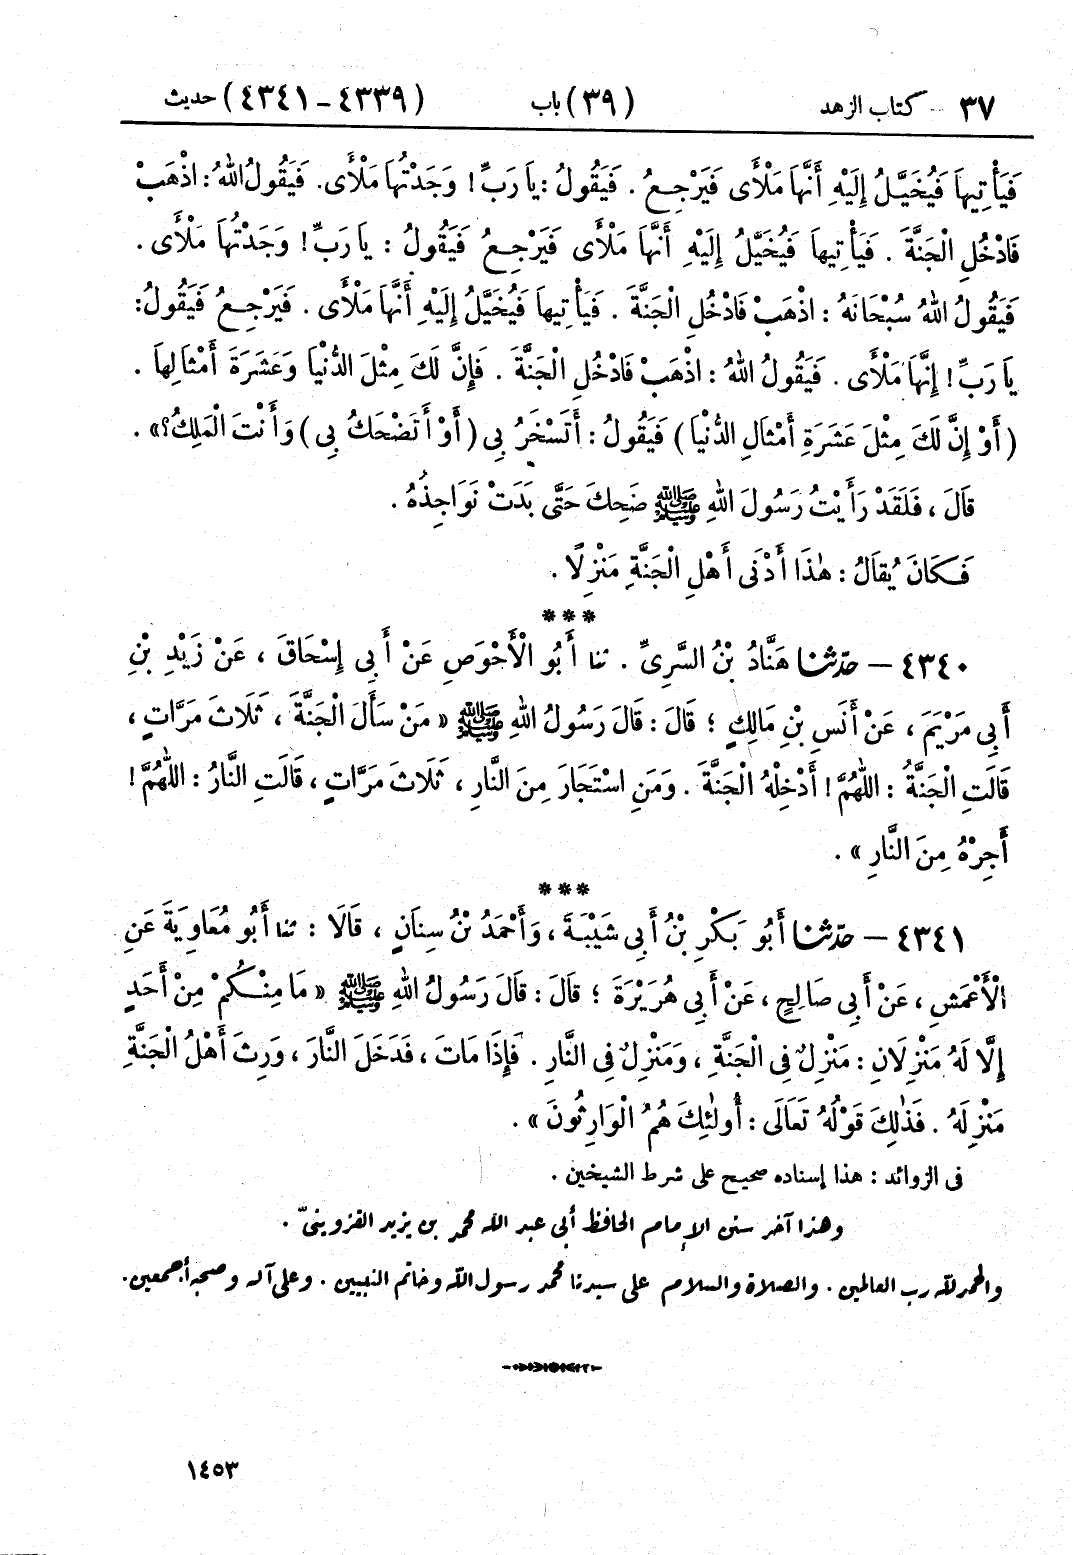 ٣٧ – كتاب الزهد (٣٩) باب (٤٣٣٩ – ٤٣٤١) حديث
فَيَأْتِيهَا فَيُخَيَّلُ إِلَيْهِ أَنَّهَا مَلْأَى فَيَرْجِعُ . فَيَقُولُ : يَا رَبِّ ! وَجَدْتُهَا مَلْأَى . فَيَقُولُ اللهُ : اذْهَبْ
فَادْخُلِ الْجَنَّةَ . فَيَأْتِيهَا فَيُخَيَّلُ إِلَيْهِ أَنَّهَا مَلْأَى فَيَرْجِعُ فَيَقُولُ : يَا رَبِّ ! وَجَدْتُهَا مَلْأَى .
فَيَقُولُ اللهُ سُبْحَانَهُ : اذْهَبْ فَادْخُلِ الْجَنَّةَ . فَيَأْتِيهَا فَيُخَيَّلُ إِلَيْهِ أَنَّهَا مَلْأَى . فَيَرْجِعُ فَيَقُولُ :
يَا رَبِّ ! إِنَّهَا مَلْأَى . فَيَقُولُ اللهُ : اذْهَبْ فَادْخُلِ الْجَنَّةَ . فَإِنَّ لَكَ مِثْلَ الدُّنْيَا وَعَشَرَةَ أَمْثَالِهَا .
( أَوْ إِنَّ لَكَ مِثْلَ عَشَرَةِ أَمْثَالِ الدُّنْيَا ) فَيَقُولُ : أَتَسْخَرُ بِي ( أَوْ أَتَضْحَكُ بِي ) وَأَنْتَ الْمَلِكُ ؟ » .
قَالَ ، فَلَقَدْ رَأَيْتُ رَسُولَ اللهِ ﷺ ضَحِكَ حَتَّى بَدَتْ نَوَاجِذُهُ .
فَكَانَ يُقَالُ : هٰذَا أَدْنَى أَهْلِ الْجَنَّةِ مَنْزِلًا .
***
٤٣٤٠ – حدّثنا هَنَّادُ بْنُ السَّرِيِّ . ثنا أَبُو الْأَحْوَصِ عَنْ أَبِي إِسْحَاقَ ، عَنْ زَيْدِ بْنِ
أَبِي مَرْيَمَ ، عَنْ أَنَسِ بْنِ مَالِكٍ ؛ قَالَ : قَالَ رَسُولُ اللهِ ﷺ « مَنْ سَأَلَ الْجَنَّةَ ، ثَلَاثَ مَرَّاتٍ ،
قَالَتِ الْجَنَّةُ : اللّٰهُمَّ ! أَدْخِلْهُ الْجَنَّةَ . وَمَنِ اسْتَجَارَ مِنَ النَّارِ ، ثَلَاثَ مَرَّاتٍ ، قَالَتِ النَّارُ : اللّٰهُمَّ !
أَجِرْهُ مِنَ النَّارِ » .
***
٤٣٤١ – حدّثنا أَبُو بَكْرِ بْنُ أَبِي شَيْبَةَ ، وَأَحْمَدُ بْنُ سِنَانٍ ، قَالَا : ثنا أَبُو مُعَاوِيَةَ عَنِ
الْأَعْمَشِ ، عَنْ أَبِي صَالِحٍ ، عَنْ أَبِي هُرَيْرَةَ ؛ قَالَ : قَالَ رَسُولُ اللهِ ﷺ « مَا مِنْكُمْ مِنْ أَحَدٍ
إِلَّا لَهُ مَنْزِلَانِ : مَنْزِلٌ فِي الْجَنَّةِ ، وَمَنْزِلٌ فِي النَّارِ . فَإِذَا مَاتَ ، فَدَخَلَ النَّارَ ، وَرِثَ أَهْلُ الْجَنَّةِ
مَنْزِلَهُ . فَذٰلِكَ قَوْلُهُ تَعَالَى : أُولٰئِكَ هُمُ الْوَارِثُونَ » .
في الزوائد : هذا إسناده صحيح على شرط الشيخين .
وهذا آخر سنن الإمام الحافظ أبي عبد الله محمد بن يزيد القزوينيّ .
والحمد لله رب العالمين . والصلاة والسلام على سيدنا محمد رسول الله وخاتم النبيين . وعلى آله وصحبه أجمعين .
١٤٥٣